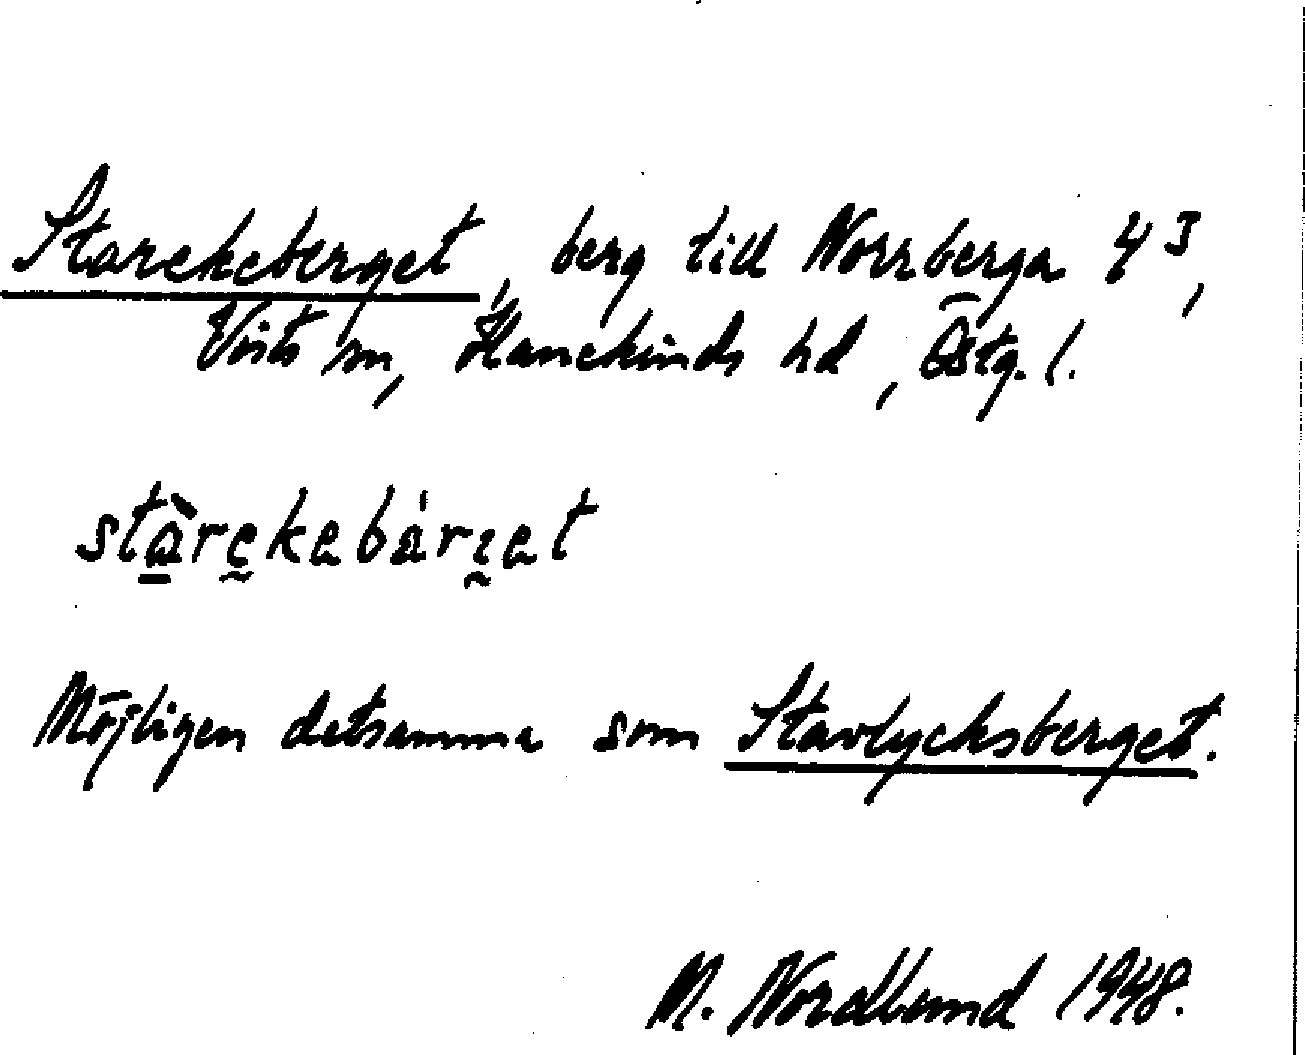 Starekeberget, berg till Norrberga 4³,
Vists sn, Hanekinds hd, Östg. l.
stàrekebárʒet
Möjligen detsamma som Stavlycksberget.
M. Nordlund 1948.